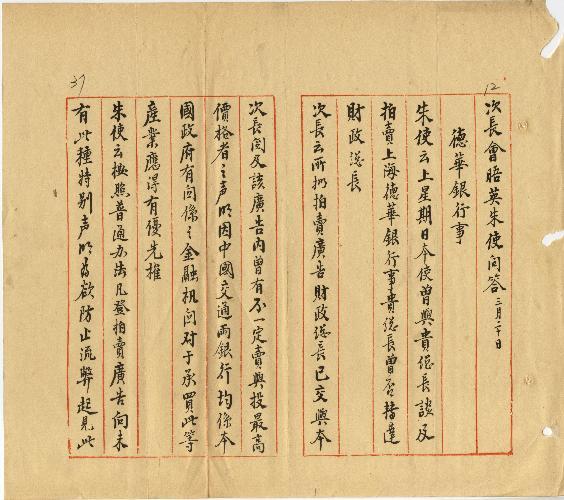 12
次長會晤英朱使問答 三月二十日
德華銀行事
朱使云上星期日本使曾與貴總長談及
拍賣上海德華銀行事貴總長曾否轉達
財政總長
次長云所擬拍賣廣告財政總長已交與本
37
次長閱及該廣告內曾有不一定賣與投最高
價格者之声明因中國交通兩銀行均係本
國政府有関係之金融机関对于承買此等
產業應得有優先權
朱使云按照普通办法凡登拍賣廣告向未
有此種特别声明為欲防止流弊起見此